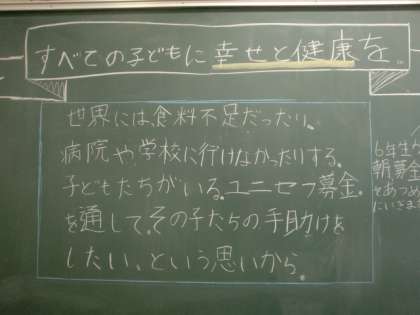 すべての子どもに幸せと健康を…
世界には食料不足だったり、
病院や学校に行けなかったりする。
子どもたちがいる。ユニセフ募金
を通して、その子たちの手助けを
したい、という思いから。
6年生が
朝募金
をあつめ
にいきま